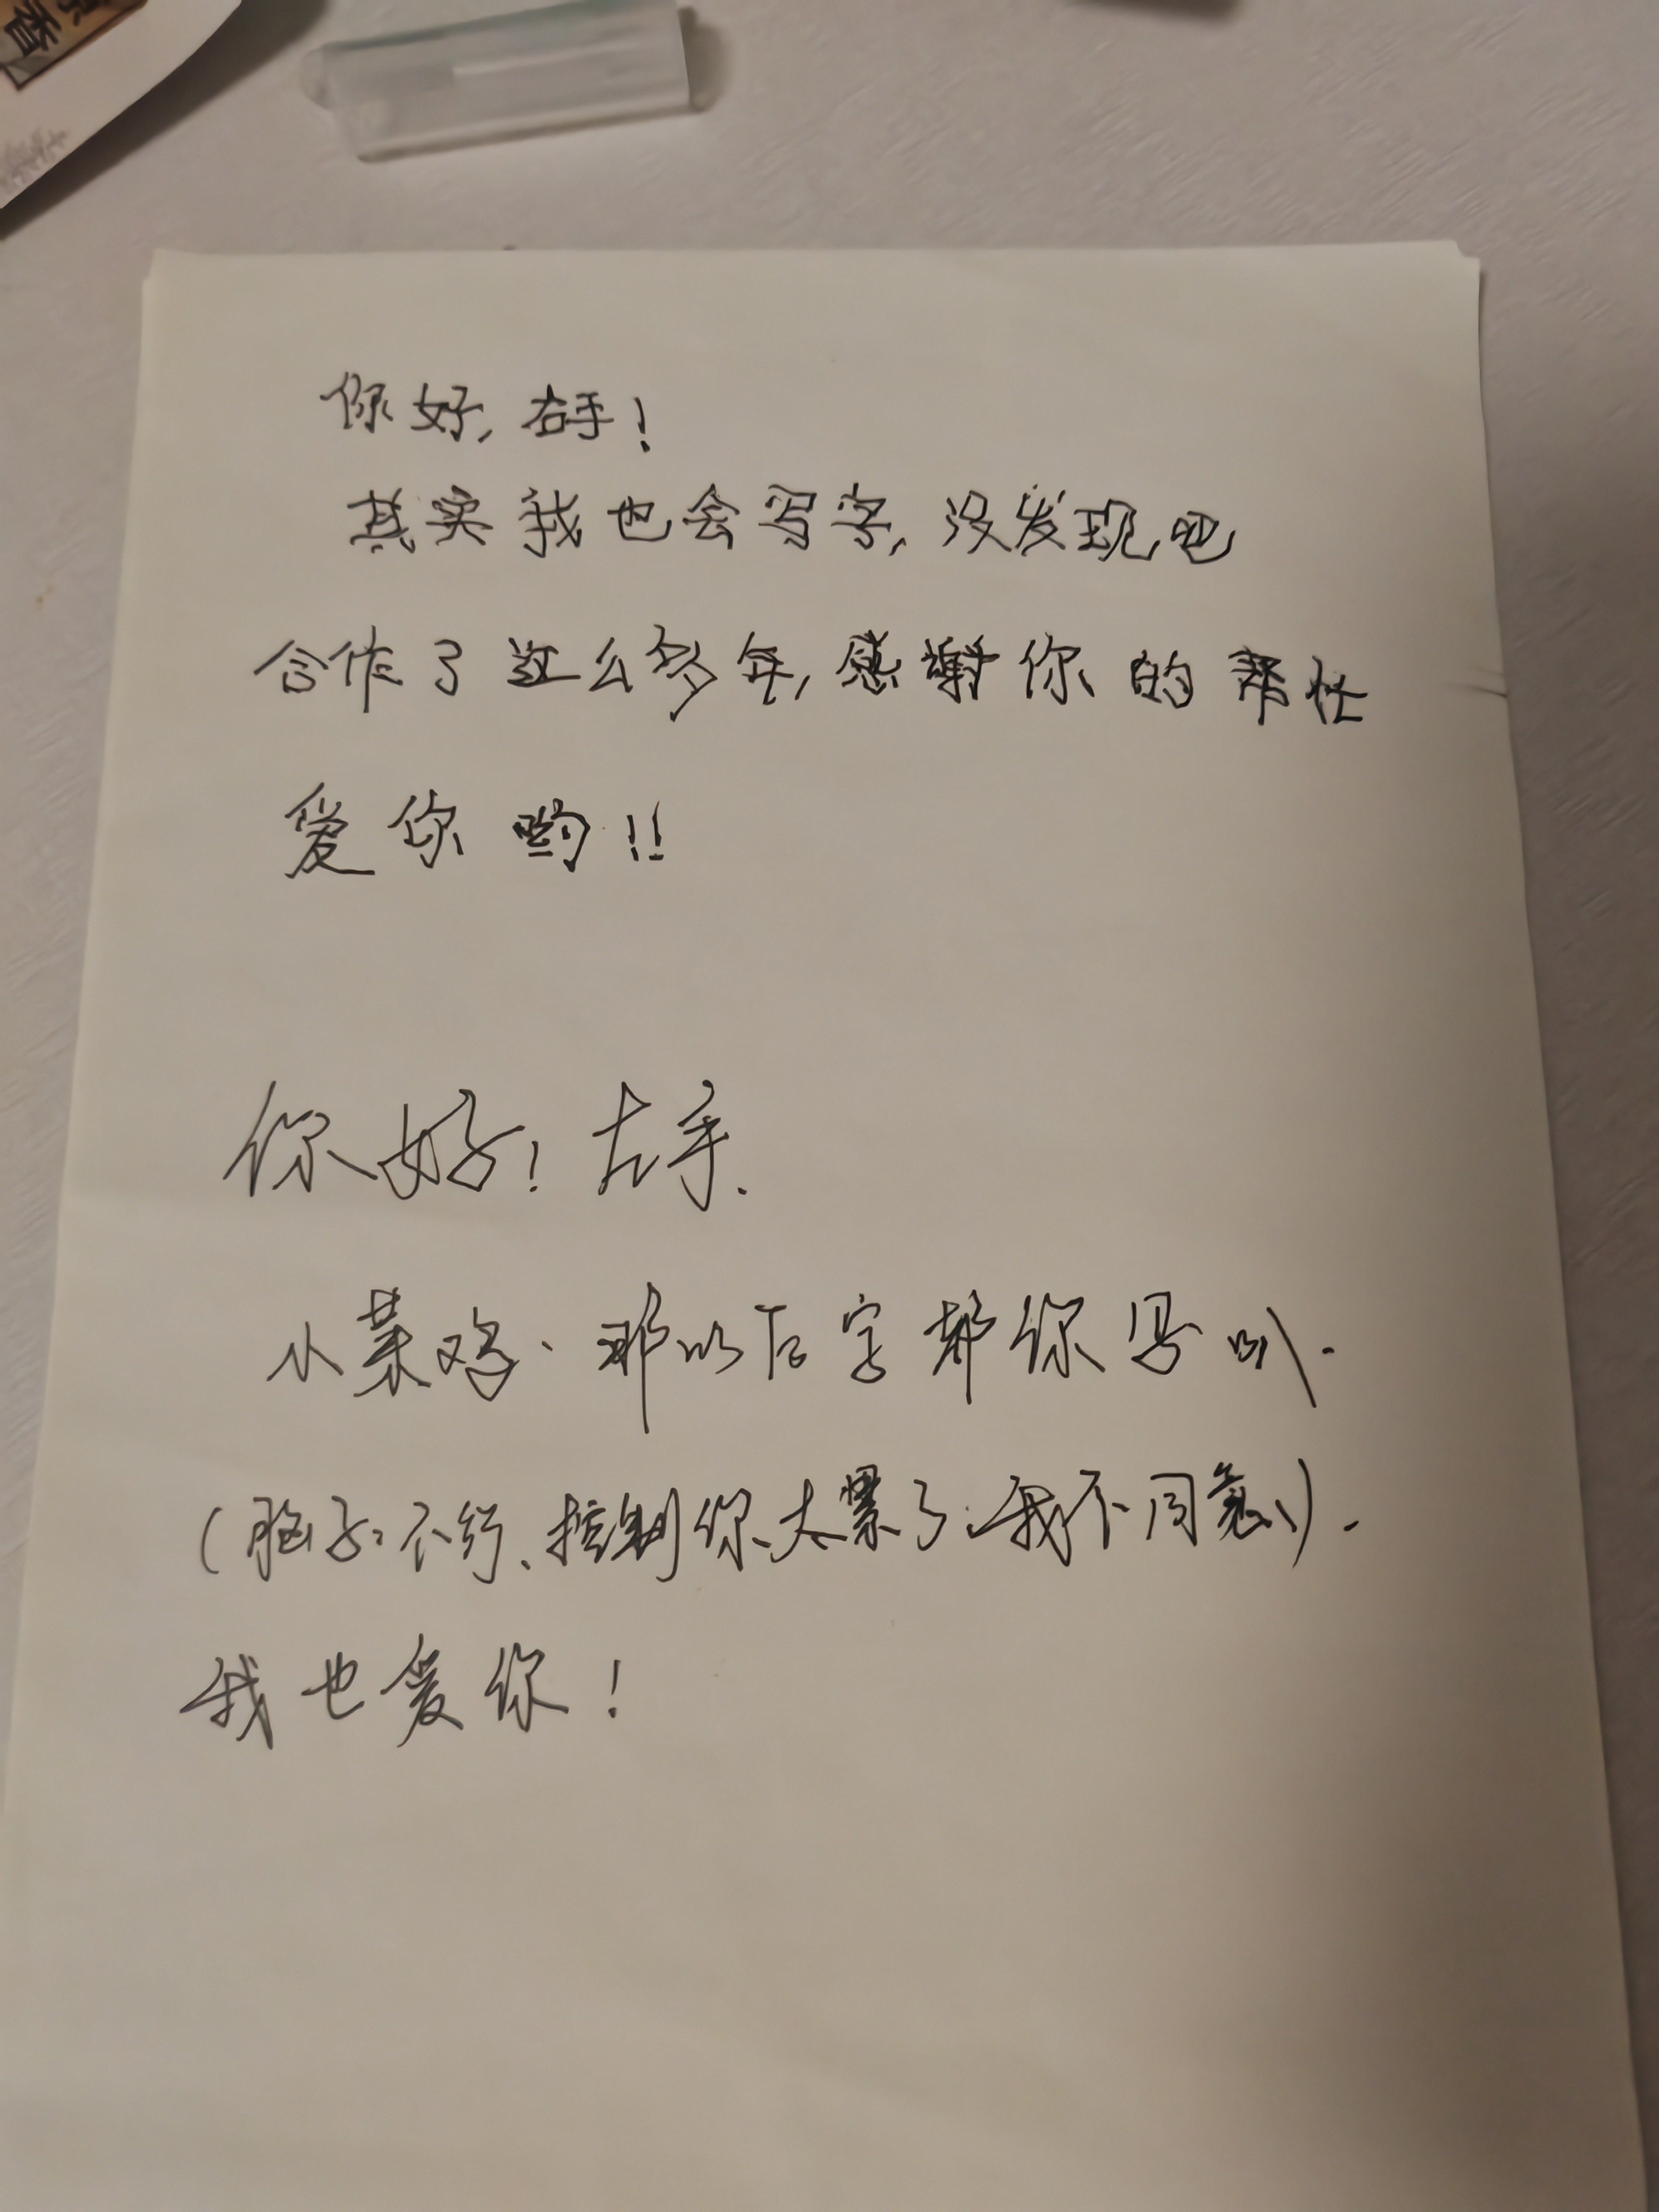 香
你好,右手!
其实我也会写字,没发现吧
合作了这么多年,感谢你的帮忙
爱你哟!!
你好!左手.
小菜鸡、那以后字都你写叭.
(脑子:不行、控制你太累了、我不同意).
我也爱你!